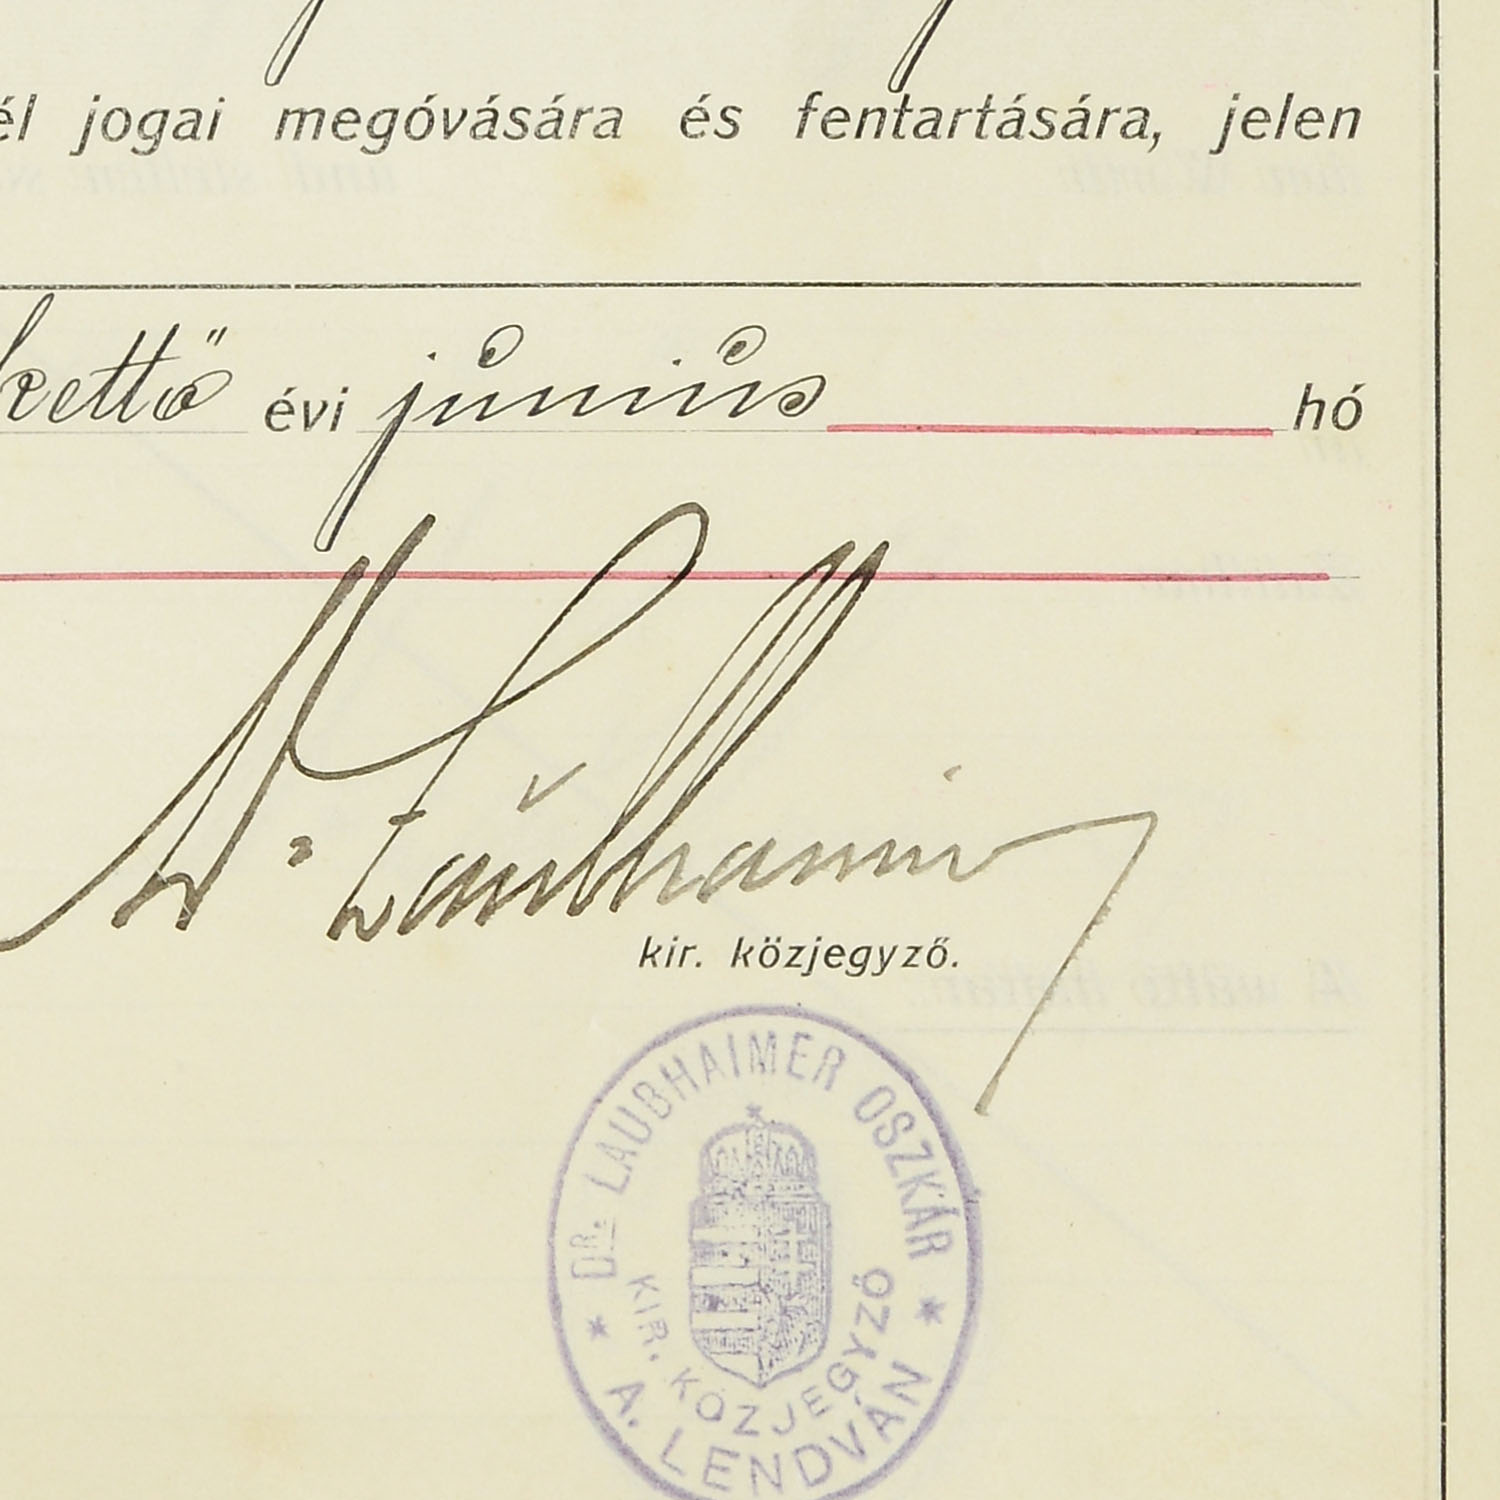 él jogai megóvására és fentartására, jelen
kettő évi június hó
Dr. Laubhaimer
kir. közjegyző.
* DR. LAUBHAIMER OSZKÁR *
KIR. KÖZJEGYZŐ
A. LENDVÁN